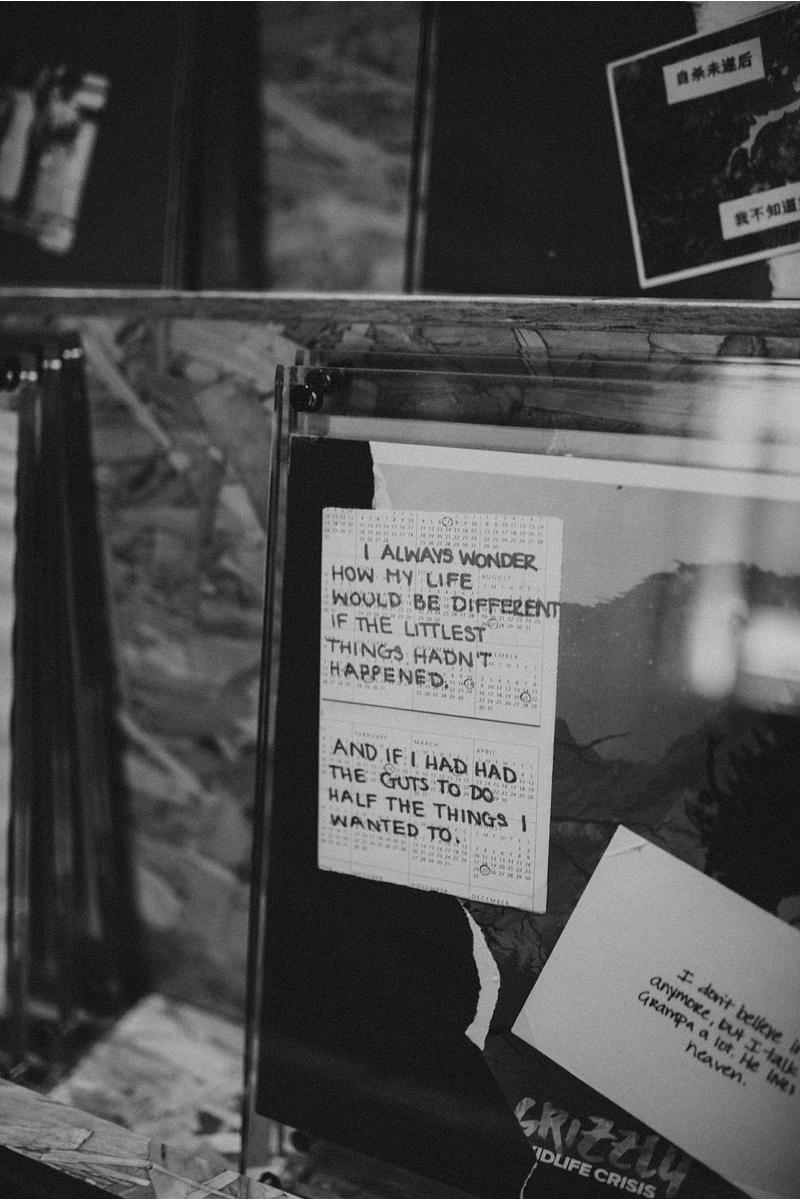 自杀未遂后
我不知道
I ALWAYS WONDER
HOW MY LIFE
WOULD BE DIFFERENT
IF THE LITTLEST
THINGS HADN'T
HAPPENED.
AND IF I HAD HAD
THE GUTS TO DO
HALF THE THINGS I
WANTED TO..
AUGUST
FEBRUARY
MARCH
APRIL
NOVEMBER
DECEMBER
I don't believe in
anymore, but I talk
Grampa a lot. He lives
heaven.
GRIZZLY
MIDLIFE CRISIS